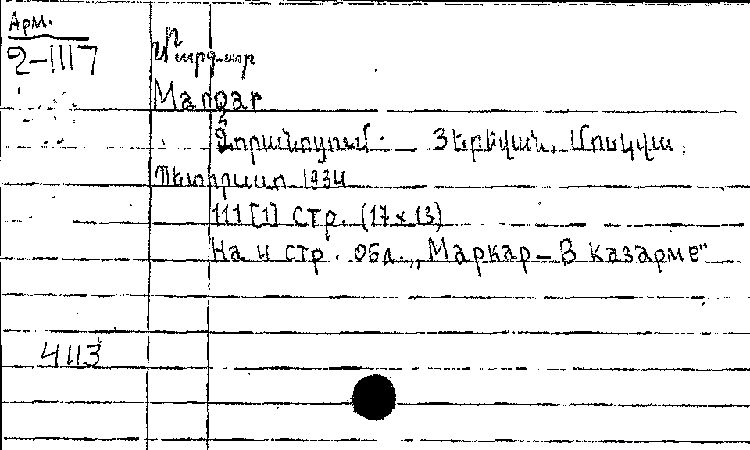 Арм.
2-1117
Մարգար
Маргар
Զորանոցում. — Յերեվան, Մոսկվա,
Պետհրատ 1934
111 [1] стр. (17 x 13)
На 4 стр. обл. „Маркар – В казарме"
4113